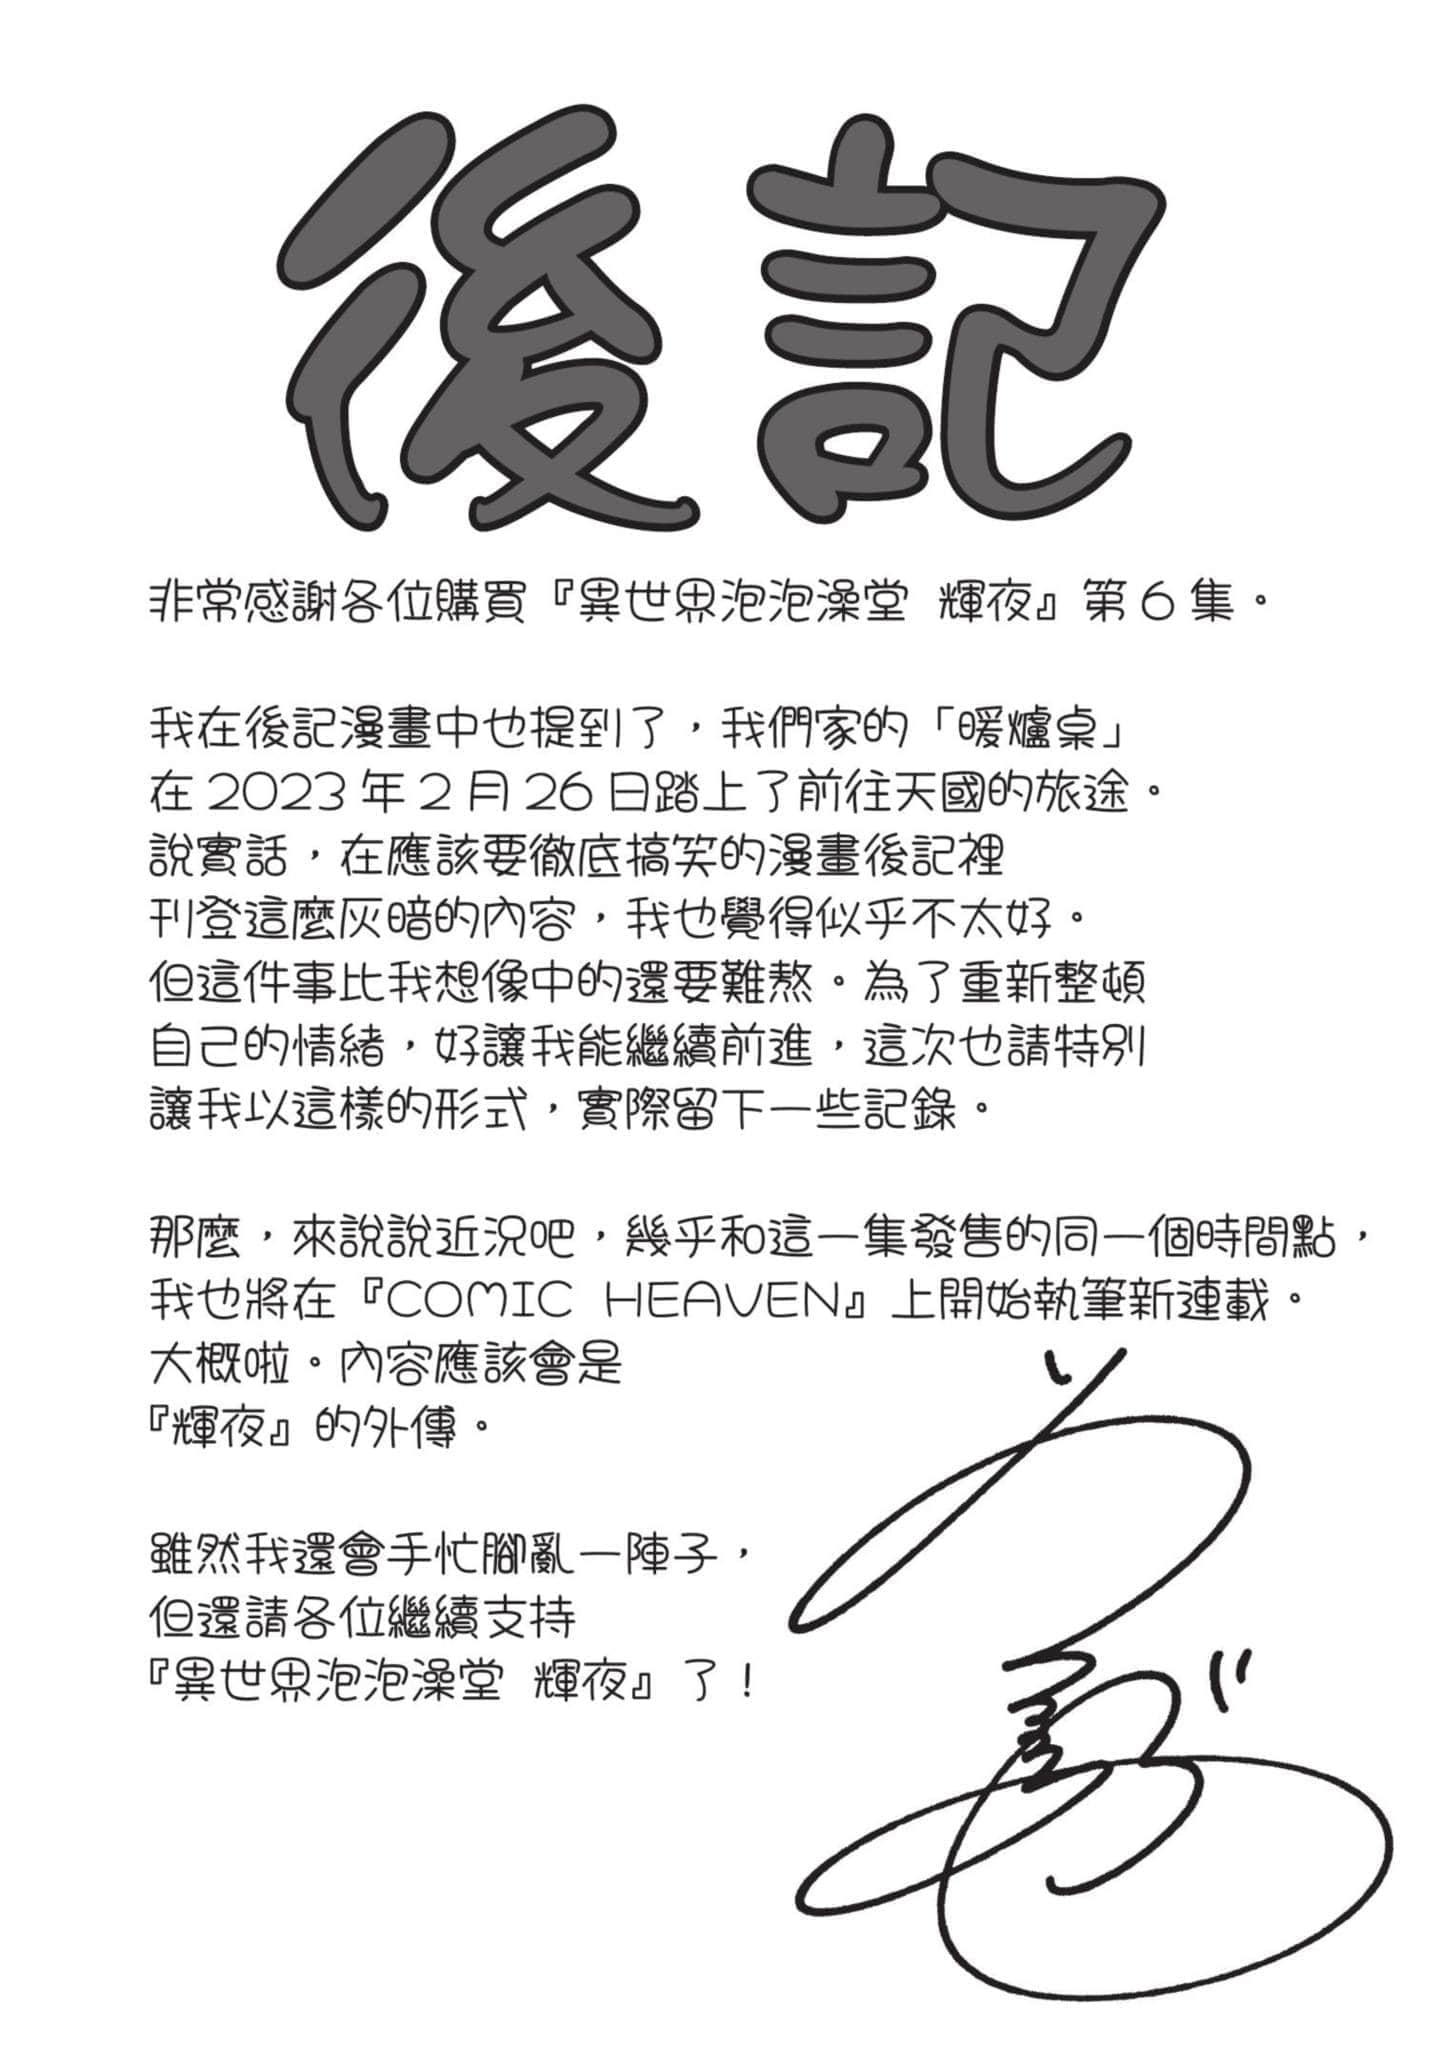 後記
非常感謝各位購買『異世界泡泡澡堂 輝夜』第6集。
我在後記漫畫中也提到了，我們家的「暖爐桌」
在2023年2月26日踏上了前往天國的旅途。
說實話，在應該要徹底搞笑的漫畫後記裡
刊登這麼灰暗的內容，我也覺得似乎不太好。
但這件事比我想像中的還要難熬。為了重新整頓
自己的情緒，好讓我能繼續前進，這次也請特別
讓我以這樣的形式，實際留下一些記錄。
那麼，來說說近況吧，幾乎和這一集發售的同一個時間點，
我也將在『COMIC HEAVEN』上開始執筆新連載。
大概啦。內容應該會是
『輝夜』的外傳。
雖然我還會手忙腳亂一陣子，
但還請各位繼續支持
『異世界泡泡澡堂 輝夜』了！